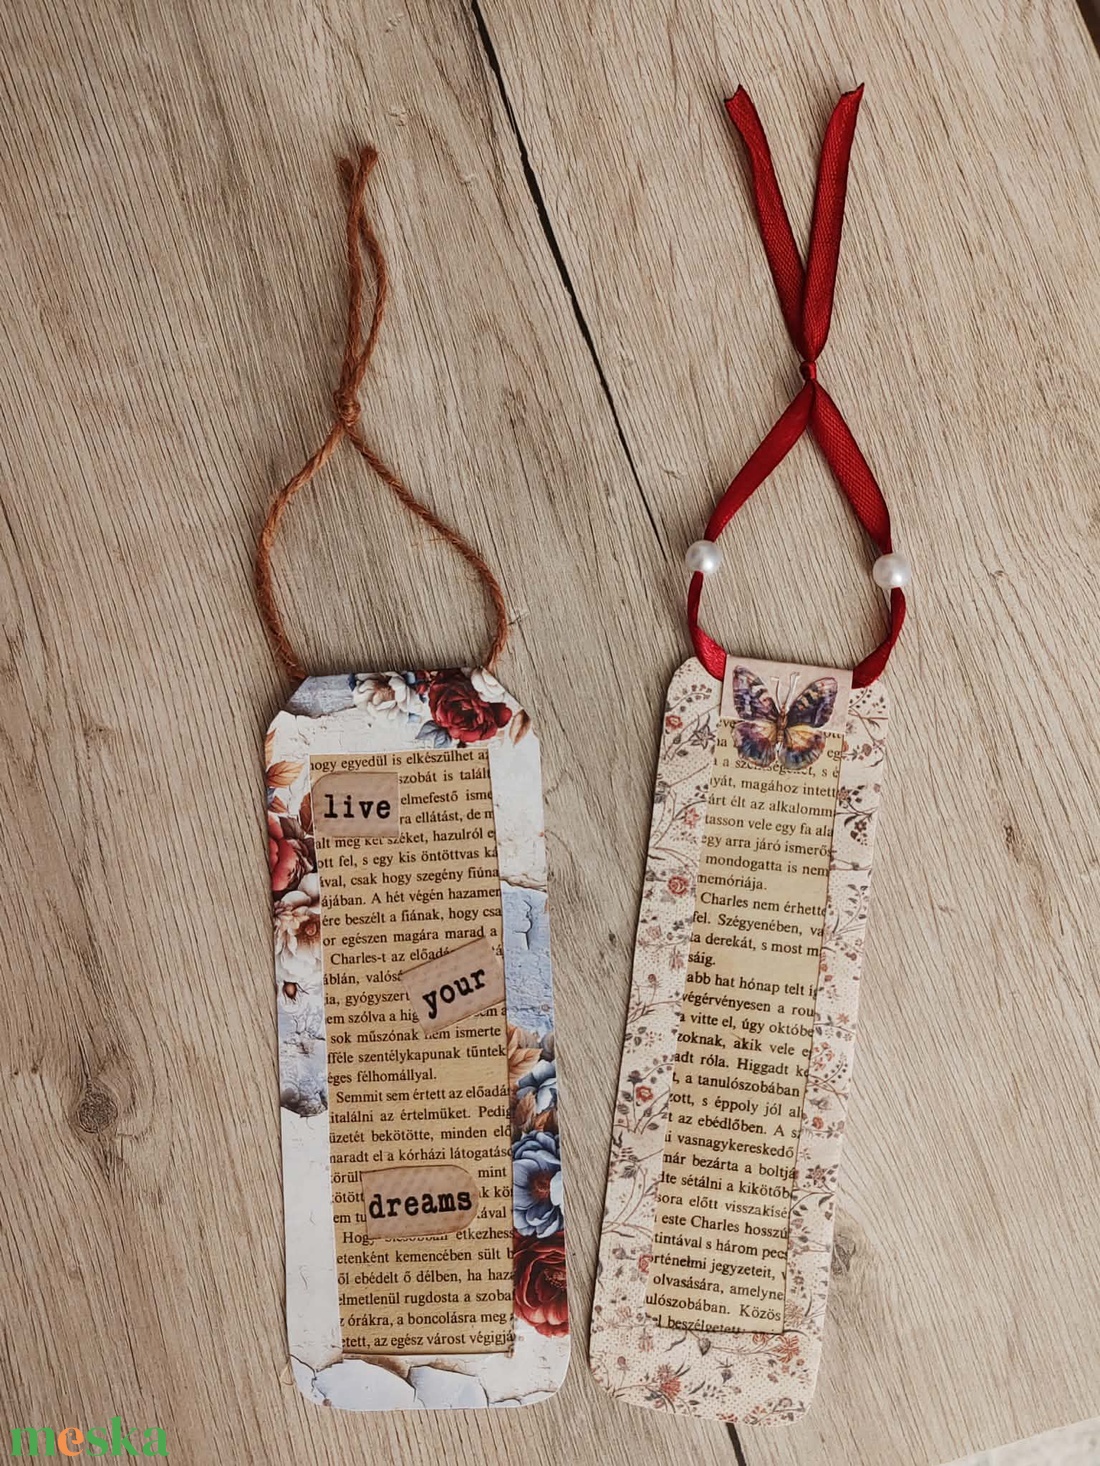 hogy egyedül is elkészülhet az
szobát is talált
live
elmefestő isme
ra ellátást, de m
alt meg két széket, hazulról e
ott fel, s egy kis öntöttvas ká
ával, csak hogy szegény fiúna
ájában. A hét végén hazamen
ére beszélt a fiának, hogy csa
or egészen magára marad a
Charles-t az előadá
áblán, valós
your
ia, gyógyszer
em szólva a hig
sok műszónak nem ismerte
fféle szentélykapunak tűntek
éges félhomállyal.
Semmit sem értett az előadás
italálni az értelmüket. Pedig
üzetét bekötötte, minden elő
maradt el a kórházi látogatáso
örül mint
ötött k kö
dreams
em tu ával
Hog étkezhess
etenként kemencében sült b
ől ebédelt ő délben, ha haza
elmetlenül rugdosta a szoba
z órákra, a boncolásra meg
etett, az egész várost végigjá
eg
a szentséget, s é
nyát, magához intett
árt élt az alkalomm
tasson vele egy fa ala
egy arra járó ismerős
mondogatta is nem
memóriája.
Charles nem érhette
fel. Szégyenében, va
ta derekát, s most m
sáig.
abb hat hónap telt í
végérvényesen a rou
a vitte el, úgy októbe
zoknak, akik vele e
adt róla. Higgadt k
t, a tanulószobában
zott, s éppoly jól al
zt az ebédlőben. A s
i vasnagykereskedő
már bezárta a boltjá
lte sétálni a kikötőb
sora előtt visszakísé
este Charles hosszú
tintával s három pecs
örténelmi jegyzeteit, v
olvasására, amelyne
ulószobában. Közös
el beszélgetett
meska